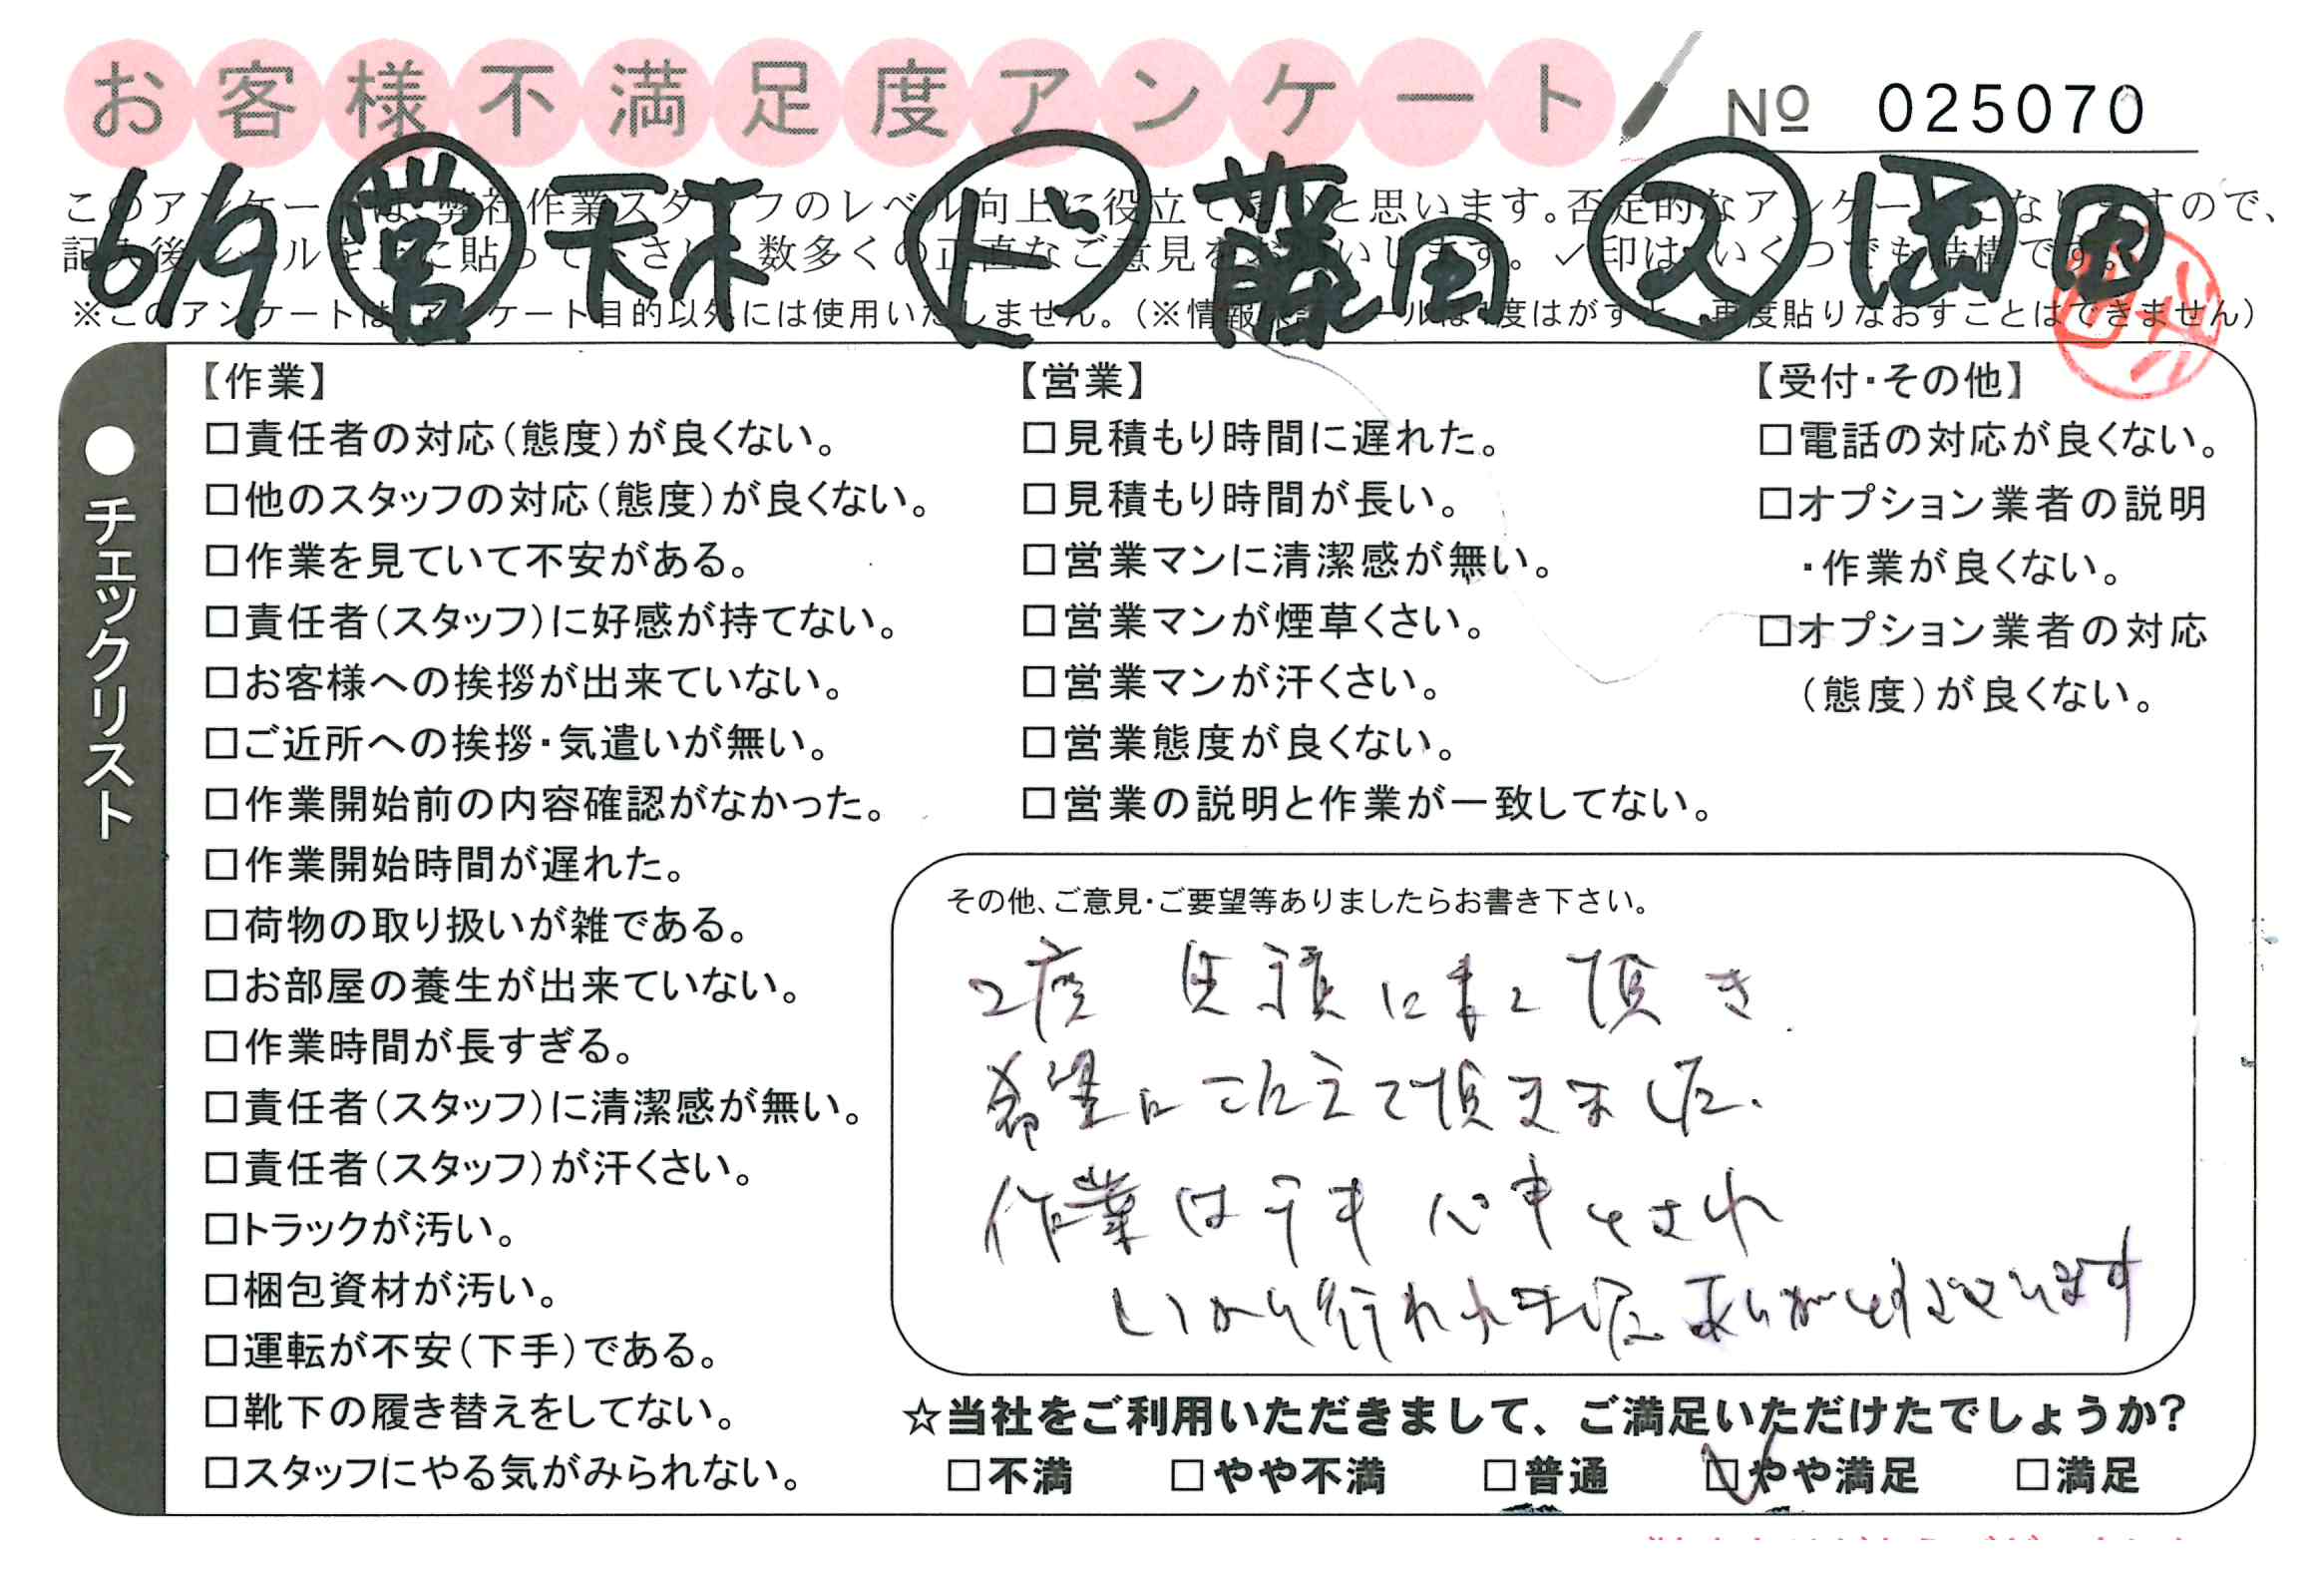 お客様不満足度アンケート
№ 025070
6/9 営 天木 ド 藤田 ス 岡田
このアンケートは、弊社作業スタッフのレベル向上に役立てたいと思います。否定的なアンケートになりますので、
記入後シールを上に貼って下さい。数多くの正直なご意見をお願いします。✓印は、いくつでも結構です。
※このアンケートは、アンケート目的以外には使用いたしません。（※情報保護シールは1度はがすと、再度貼りなおすことはできません）
●チェックリスト
【作業】
□責任者の対応（態度）が良くない。
□他のスタッフの対応（態度）が良くない。
□作業を見ていて不安がある。
□責任者（スタッフ）に好感が持てない。
□お客様への挨拶が出来ていない。
□ご近所への挨拶・気遣いが無い。
□作業開始前の内容確認がなかった。
□作業開始時間が遅れた。
□荷物の取り扱いが雑である。
□お部屋の養生が出来ていない。
□作業時間が長すぎる。
□責任者（スタッフ）に清潔感が無い。
□責任者（スタッフ）が汗くさい。
□トラックが汚い。
□梱包資材が汚い。
□運転が不安（下手）である。
□靴下の履き替えをしてない。
□スタッフにやる気がみられない。
【営業】
□見積もり時間に遅れた。
□見積もり時間が長い。
□営業マンに清潔感が無い。
□営業マンが煙草くさい。
□営業マンが汗くさい。
□営業態度が良くない。
□営業の説明と作業が一致してない。
【受付・その他】
□電話の対応が良くない。
□オプション業者の説明
・作業が良くない。
□オプション業者の対応
（態度）が良くない。
その他、ご意見・ご要望等ありましたらお書き下さい。
2度 見積に来て頂き
希望にこたえて頂きました.
作業はテキパキとされ
行われました ありがとうございます
☆当社をご利用いただきまして、ご満足いただけたでしょうか？
□不満 □やや不満 □普通 ☑やや満足 □満足